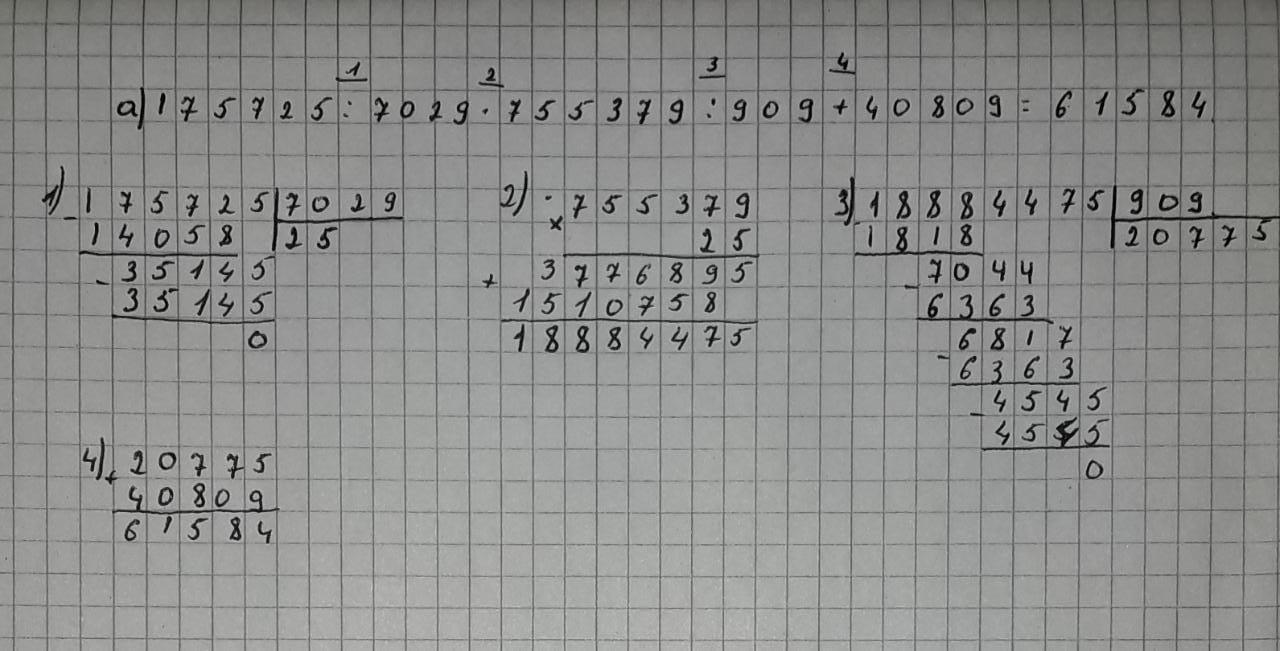 1 2 3 4
а) 175725 : 7029 · 755379 : 909 + 40809 = 61584
1) 175725 | 7029
- 14058 | 25
- 35145
35145
0
2) · 755379
× 25
+ 3776895
1510758
18884475
3) 18884475 | 909
1818 | 20775
- 7044
6363
- 6817
6363
- 4545
4545
0
4) + 20775
40809
61584